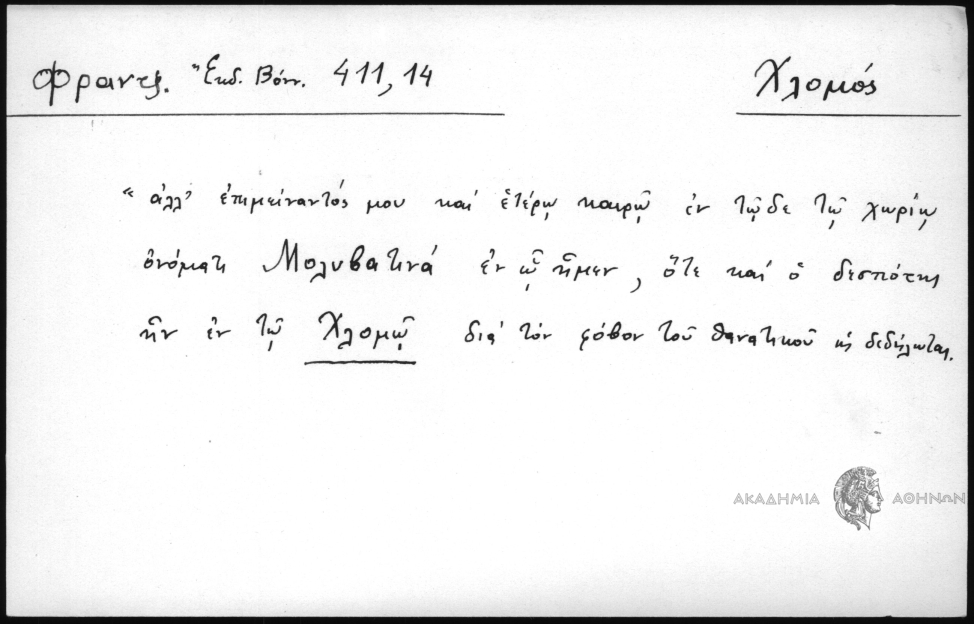 Φραντζ. Ἔκδ. Βόνν. 411,14
Χλομός
"ἀλλ' ἐπιμείναντός μου καί ἑτέρῳ καιρῷ ἐν τῷδε τῷ χωρίῳ
ὀνόματι Μολυβατινά ἐν ᾧ ἦμεν, ὅτε καί ὁ δεσπότης
ἦν ἐν τῷ Χλομῷ διά τόν φόβον τοῦ θανατικοῦ ὡς δεδήλωται.
ΑΚΑΔΗΜΙΑ ΑΘΗΝΩΝ